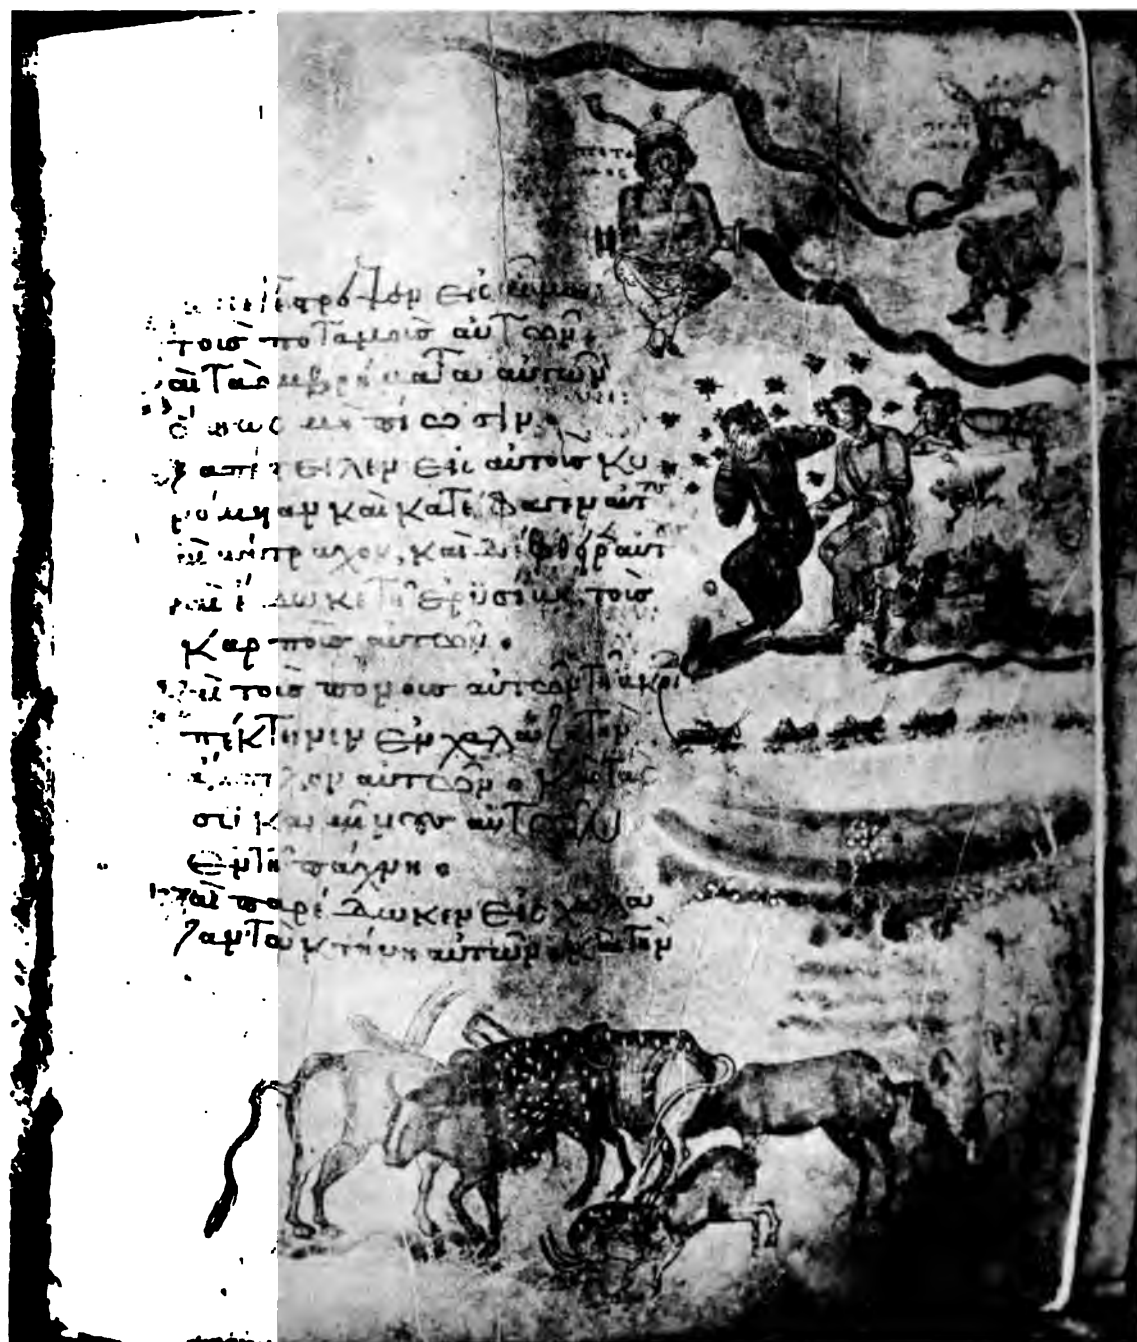 ποτα
μος
ποτ
αμος
εἰς αἷμα
τοὺς ποταμοὺς αὐτῶν,
καὶ τὰ ὀμβρήματα αὐτῶν
ὅπως μὴ πίωσιν.
ἐξαπέστειλεν εἰς αὐτοὺς κυ
νόμυιαν καὶ κατέφαγεν αὐτοὺς
καὶ βάτραχον, καὶ διέφθειρεν αὐτοὺς
καὶ ἔδωκε τῇ ἐρυσίβῃ τοὺς
καρποὺς αὐτῶν.
καὶ τοὺς πόνους αὐτῶν τῇ ἀκρίδι
ἀπέκτεινεν ἐν χαλάζῃ τὴν
ἄμπελον αὐτῶν. καὶ τὰς
συκαμίνους αὐτῶν
ἐν τῇ πάχνῃ.
καὶ παρέδωκεν εἰς χάλα
ζαν τὰ κτήνη αὐτῶν. καὶ τὴν